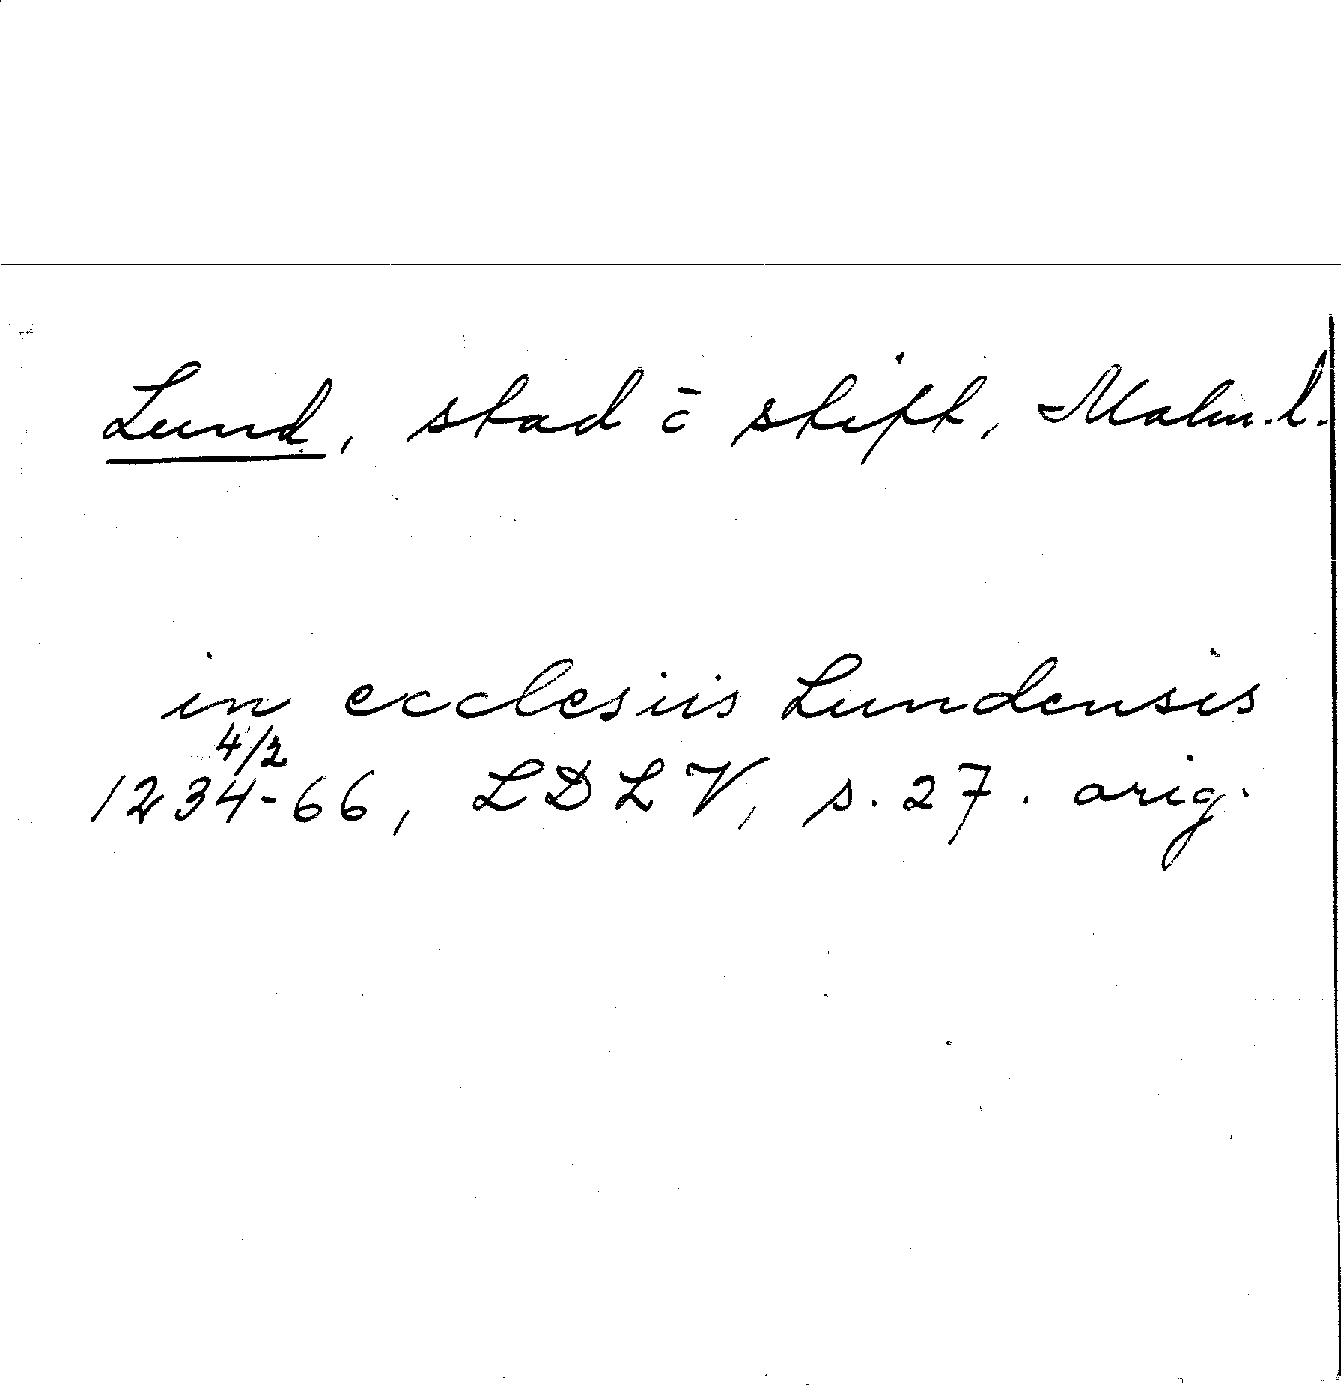 Lund, stad o stift, Malm. l.
in ecclesiis Lundensis
4/2
1234-66, LDLV, s. 27. orig.